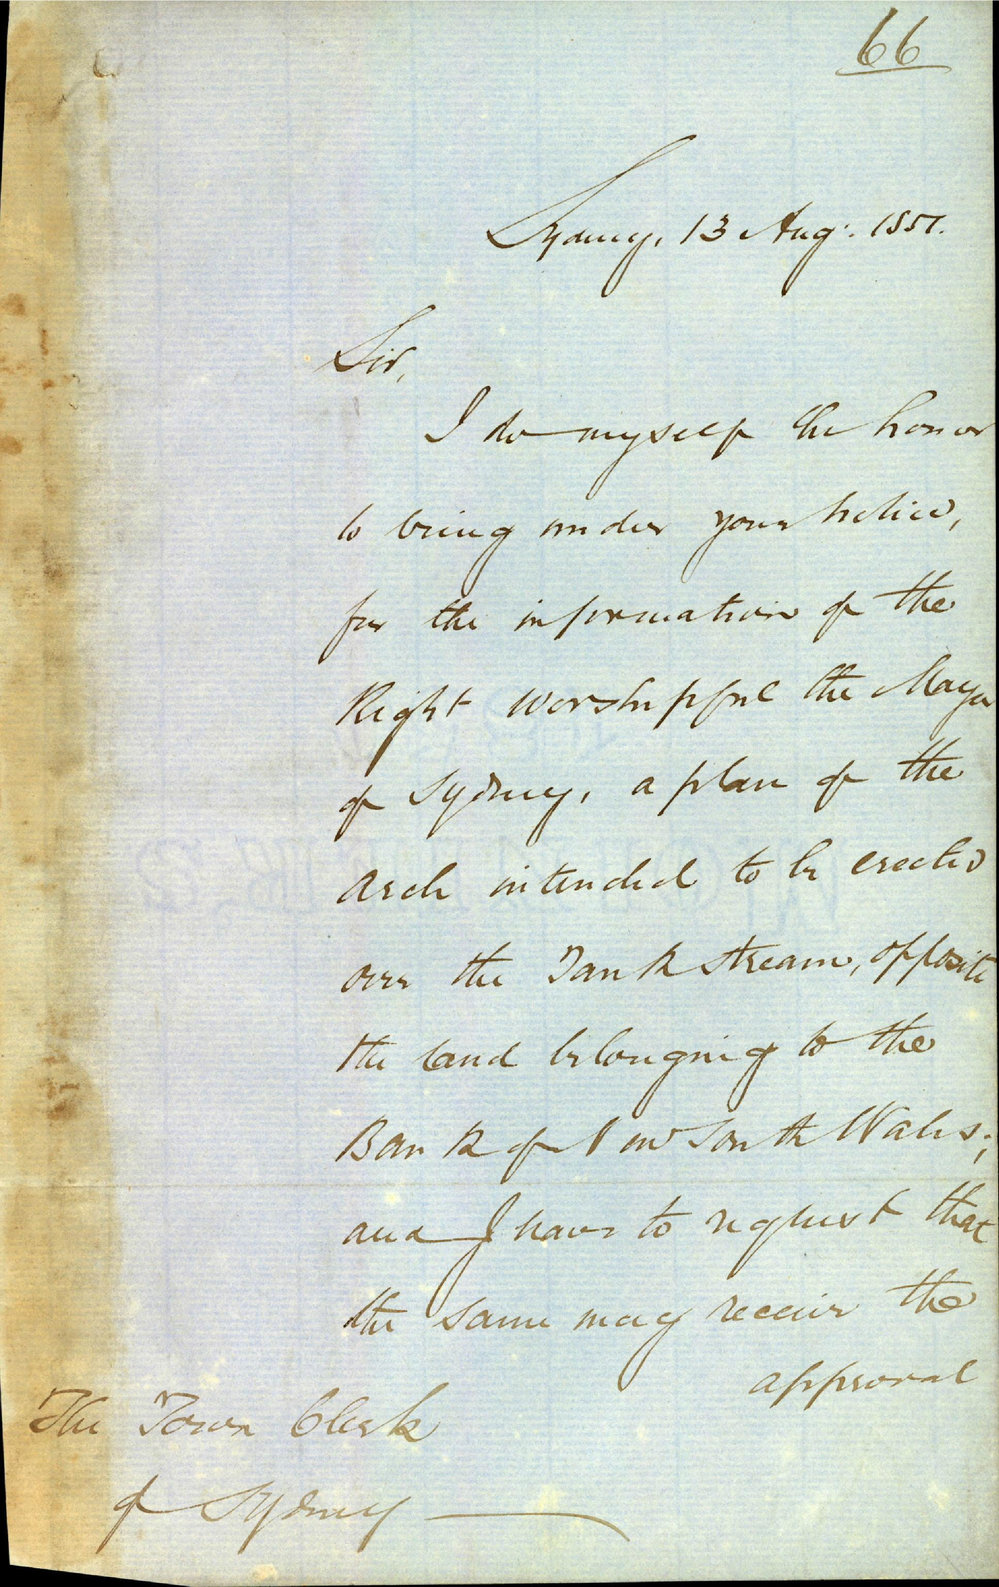 66
Sydney, 13 Aug: 1857.
Sir,
I do myself the honor
to bring under your notice,
for the information of the
Right Worshipful the Mayor
of Sydney, a plan of the
Arch intended to be erected
over the Tank Stream, opposite
the land belonging to the
Bank of New South Wales;
and I have to request that
the same may receive the
approval
The Town Clerk
of Sydney